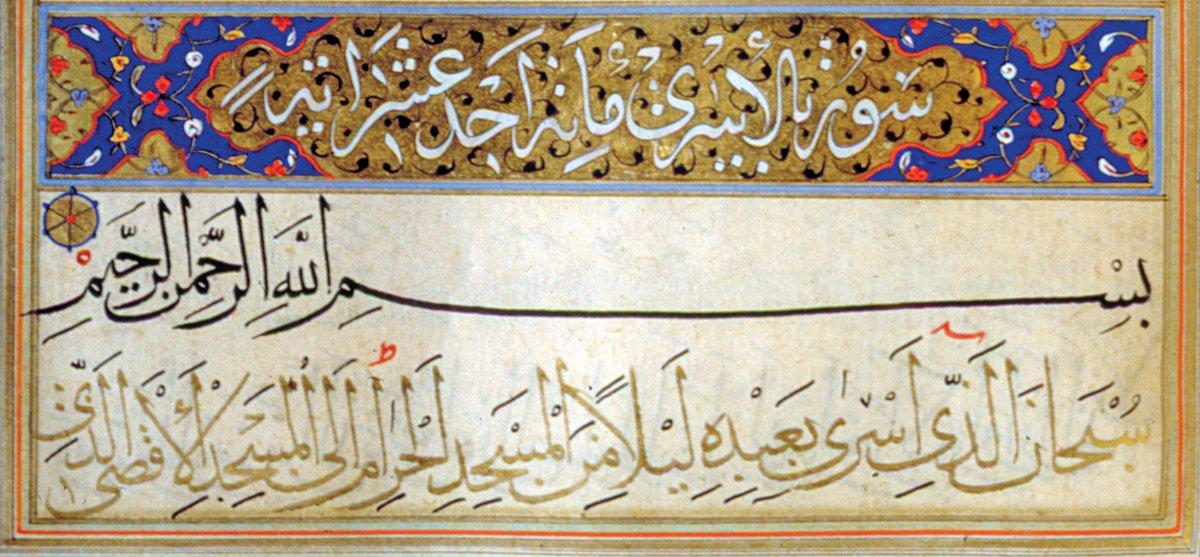 سورة الأسرى مائة احد عشر اية
بِسْمِ اللَّهِ الرَّحْمنِ الرَّحِيمِ
سُبْحَانَ الَّذِي أَسْرى بِعَبْدِهِ لَيْلًا مِنَ الْمَسْجِدِ الْحَرَامِ إِلَى الْمَسْجِدِ الْأَقْصَى الَّذِي